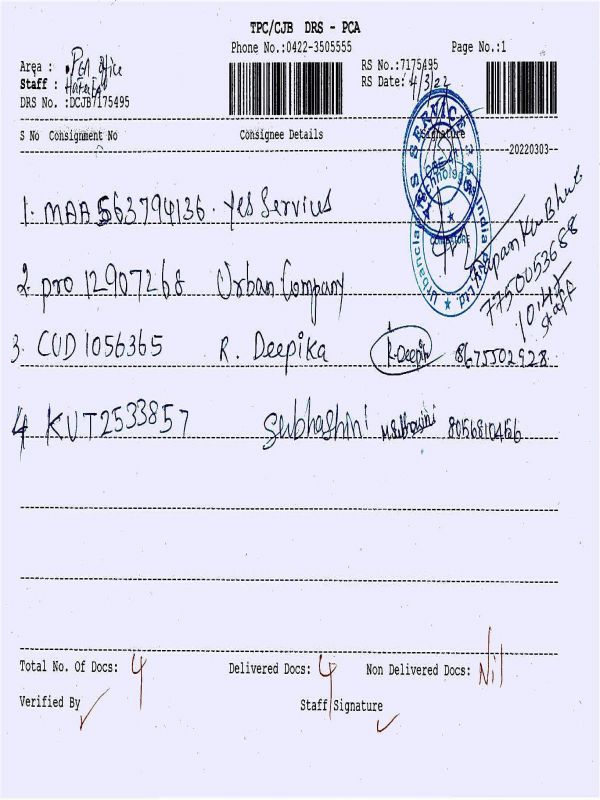 TPC/CJB DRS - PCA
Phone No.:0422-3505555 Page No.:1
Area : PCA office RS No.:7175495
Staff : RS Date: 4/3/22
DRS No. :DCJB7175495
S No Consignment No Consignee Details Signature
20220303
1. MAA563794136. Yes Services
2. pro 12907268 Urban Company 7750053688
10:45
Staff
3. CUD 1056365 R. Deepika R. Deepika 8675502928
4 KUT2533857 Subhashini M. Subhasini 8056810456
Total No. Of Docs: 4 Delivered Docs: 4 Non Delivered Docs: Nil
Verified By Staff Signature